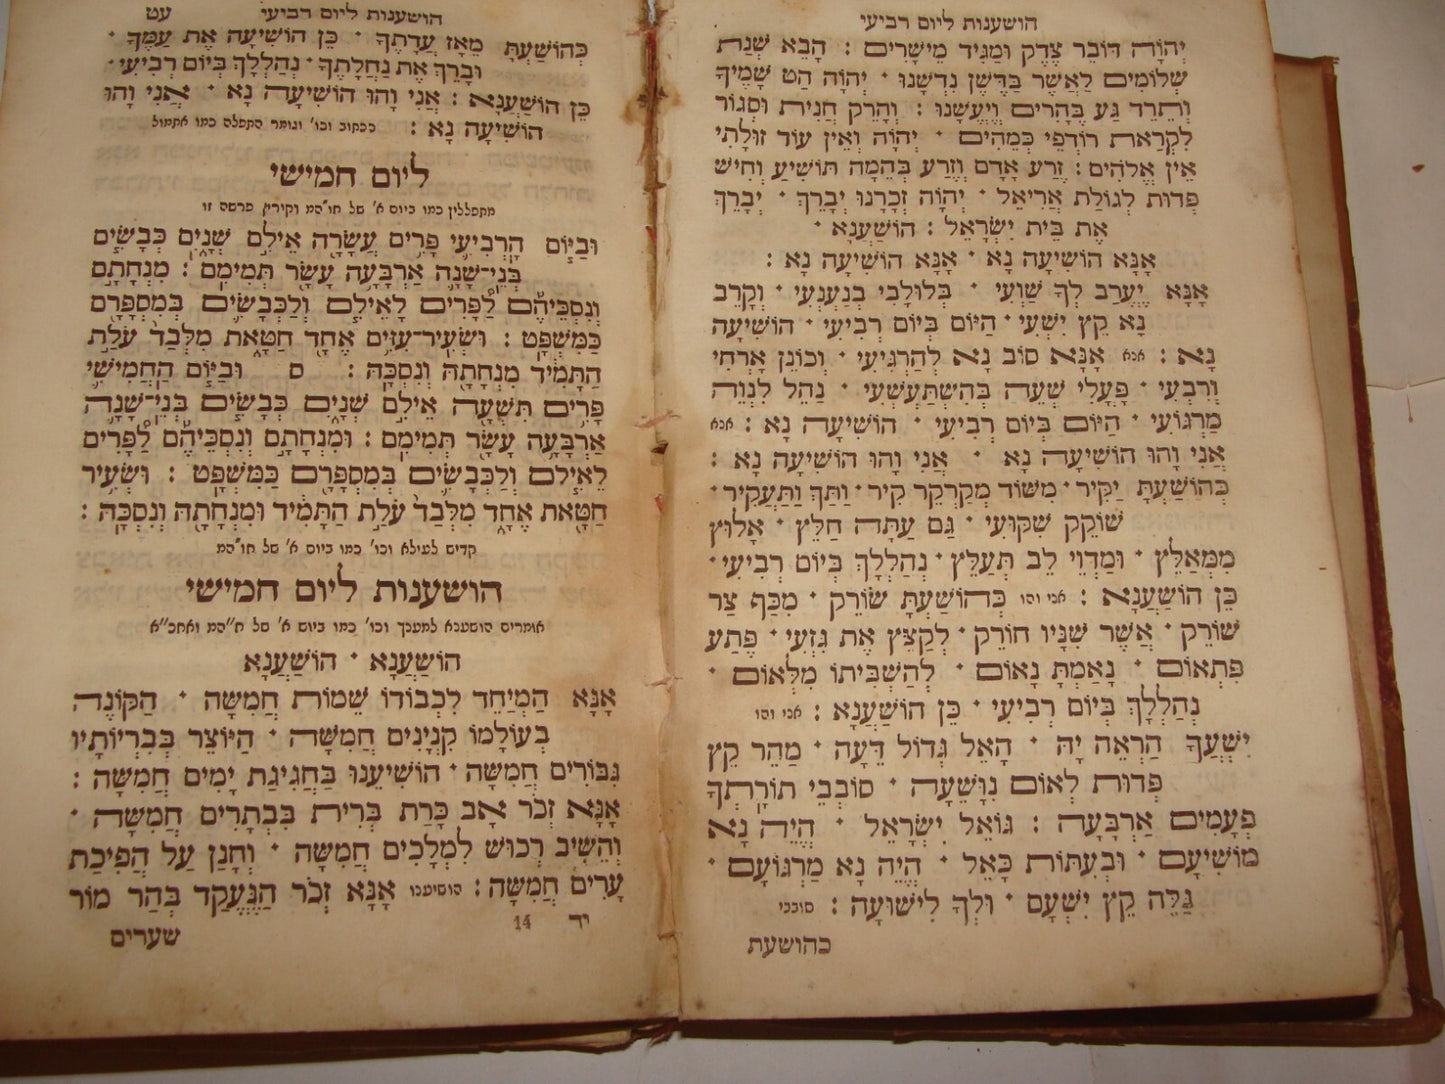 הושענות ליום רביעי
יְהֹוָה דּוֹבֵר צֶדֶק וּמַגִּיד מֵישָׁרִים : הָבֵא שְׁנַת
שִׁלּוּמִים לַאֲשֶׁר בַּדֶּשֶׁן נִדְשָׁנוּ · יְהֹוָה הַט שָׁמֶיךָ
וְתֵרֵד גַּע בֶּהָרִים וְיֶעֱשָׁנוּ : וְהָרֵק חֲנִית וּסְגוֹר
לִקְרַאת רוֹדְפֵי כְּמֵהִים · יְהֹוָה וְאֵין עוֹד זוּלָתִי
אֵין אֱלֹהִים : זֶרַע אָדָם וְזֶרַע בְּהֵמָה תּוֹשִׁיעַ וְחִישׁ
פְּדוּת לְגוֹלַת אֲרִיאֵל · יְהֹוָה זְכָרָנוּ יְבָרֵךְ · יְבָרֵךְ
אֶת בֵּית יִשְׂרָאֵל : הוֹשַׁעְנָא ·
אָנָּא הוֹשִׁיעָה נָא · אָנָּא הוֹשִׁיעָה נָא :
אָנָּא יֶעֱרַב לְךָ שַׁוְעִי · בְּלוּלָבִי בְנַעְנְעִי · וְקָרֵב
נָא קֵץ יִשְׁעִי · הַיּוֹם בְּיוֹם רְבִיעִי · הוֹשִׁיעָה
נָּא : אנא אָנָּא סוֹב נָא לְהַרְגִּיעִי · וְכוֹנֵן אָרְחִי
וְרִבְעִי · פָּעֳלִי שְׁעֵה בְּהִשְׁתַּעְשְׁעִי · נַהֵל לִנְוֵה
מַרְגּוֹעִי · הַיּוֹם בְּיוֹם רְבִיעִי · הוֹשִׁיעָה נָא : אנא
אֲנִי וָהוּ הוֹשִׁיעָה נָא · אֲנִי וָהוּ הוֹשִׁיעָה נָא :
כְּהוֹשַׁעְתָּ יַקִּיר · מִשּׁוֹד מְקַרְקֵר קִיר · וַתַּךְ וַתַּעֲקִיר ·
שׁוֹקֵק שִׁקּוּעִי · גַּם עַתָּה חַלֵּץ · אָלוּץ
מִמְּאַלֵּץ · וּמַדְוֵי לֵב תְּעַלֵּץ · נְהַלְלָךְ בְּיוֹם רְבִיעִי ·
כֵּן הוֹשַׁעְנָא : אני והו כְּהוֹשַׁעְתָּ שׂוֹרֵק · מִכַּף צַר
שׁוֹרֵק · אֲשֶׁר שִׁנָּיו חוֹרֵק · לְקַצֵּץ אֶת גִּזְעִי · פֶּתַע
פִּתְאוֹם · נָאַמְתָּ נָאוֹם · לְהַשְׁבִּיתוֹ מִלְּאוֹם ·
נְהַלְלָךְ בְּיוֹם רְבִיעִי · כֵּן הוֹשַׁעְנָא : אני והו
יִשְׁעֲךָ הַרְאֵה יָהּ · הָאֵל גְּדוֹל דֵּעָה · מַהֵר קֵץ
פְּדוּת לְאוֹם נִוָּשֵׁעָה · סוֹבְבֵי תוֹרָתְךָ
פְּעָמִים אַרְבָּעָה : גּוֹאֵל יִשְׂרָאֵל · הֱיֵה נָא
מוֹשִׁיעָם · וּבְעִתּוֹת כָּאֵל · הֱיֵה נָא מַרְגּוֹעָם ·
גַּלֵּה קֵץ יִשְׁעָם · וּלְךָ לִישׁוּעָה : סובבי
כהושעת
הושענות ליום רביעי עט
כְּהוֹשַׁעְתָּ מֵאָז עֲדָתֶךָ · כֵּן הוֹשִׁיעָה אֶת עַמֶּךָ ·
וּבָרֵךְ אֶת נַחֲלָתֶךָ · נְהַלְלָךְ בְּיוֹם רְבִיעִי ·
כֵּן הוֹשַׁעְנָא : אֲנִי וָהוּ הוֹשִׁיעָה נָא · אֲנִי וָהוּ
הוֹשִׁיעָה נָא : ככתוב וכו׳ וגומר התפלה כמו אתמול
ליום חמישי
מתפללין כמו ביום א׳ של חו״המ וקורין פרשה זו
וּבַיּוֹם הָרְבִיעִי פָּרִים עֲשָׂרָה אֵילִם שְׁנָיִם כְּבָשִׂים
בְּנֵי־שָׁנָה אַרְבָּעָה עָשָׂר תְּמִימִם : מִנְחָתָם
וְנִסְכֵּיהֶם לַפָּרִים לָאֵילִם וְלַכְּבָשִׂים בְּמִסְפָּרָם
כַּמִּשְׁפָּט : וּשְׂעִיר־עִזִּים אֶחָד חַטָּאת מִלְּבַד עֹלַת
הַתָּמִיד מִנְחָתָהּ וְנִסְכָּהּ : ס וּבַיּוֹם הַחֲמִישִׁי
פָּרִים תִּשְׁעָה אֵילִם שְׁנָיִם כְּבָשִׂים בְּנֵי־שָׁנָה
אַרְבָּעָה עָשָׂר תְּמִימִם : וּמִנְחָתָם וְנִסְכֵּיהֶם לַפָּרִים
לָאֵילִם וְלַכְּבָשִׂים בְּמִסְפָּרָם כַּמִּשְׁפָּט : וּשְׂעִיר
חַטָּאת אֶחָד מִלְּבַד עֹלַת הַתָּמִיד וּמִנְחָתָהּ וְנִסְכָּהּ :
קדיש לעילא וכו׳ כמו ביום א׳ של חו״המ
הושענות ליום חמישי
אומרים הושענא למענך וכו׳ כמו ביום א׳ של ח״המ ואחכ״א
הוֹשַׁעְנָא · הוֹשַׁעְנָא
אָנָּא הַמְיַחֵד לִכְבוֹדוֹ שֵׁמוֹת חֲמִשָּׁה · הַקּוֹנֶה
בְּעוֹלָמוֹ קִנְיָנִים חֲמִשָּׁה · הַיּוֹצֵר בְּבִרְיוֹתָיו
גִּבּוֹרִים חֲמִשָּׁה · הוֹשִׁיעֵנוּ בַּחֲגִיגַת יָמִים חֲמִשָּׁה :
אָנָּא זְכֹר אָב כָּרַת בְּרִית בִּבְתָרִים חֲמִשָּׁה ·
וְהֵשִׁיב רְכוּשׁ לִמְלָכִים חֲמִשָּׁה · וְחָנַן עַל הֲפִיכַת
עָרִים חֲמִשָּׁה : הושיענו אָנָּא זְכֹר הַנֶּעֱקַד בְּהַר מוֹר
יד 14
שערים